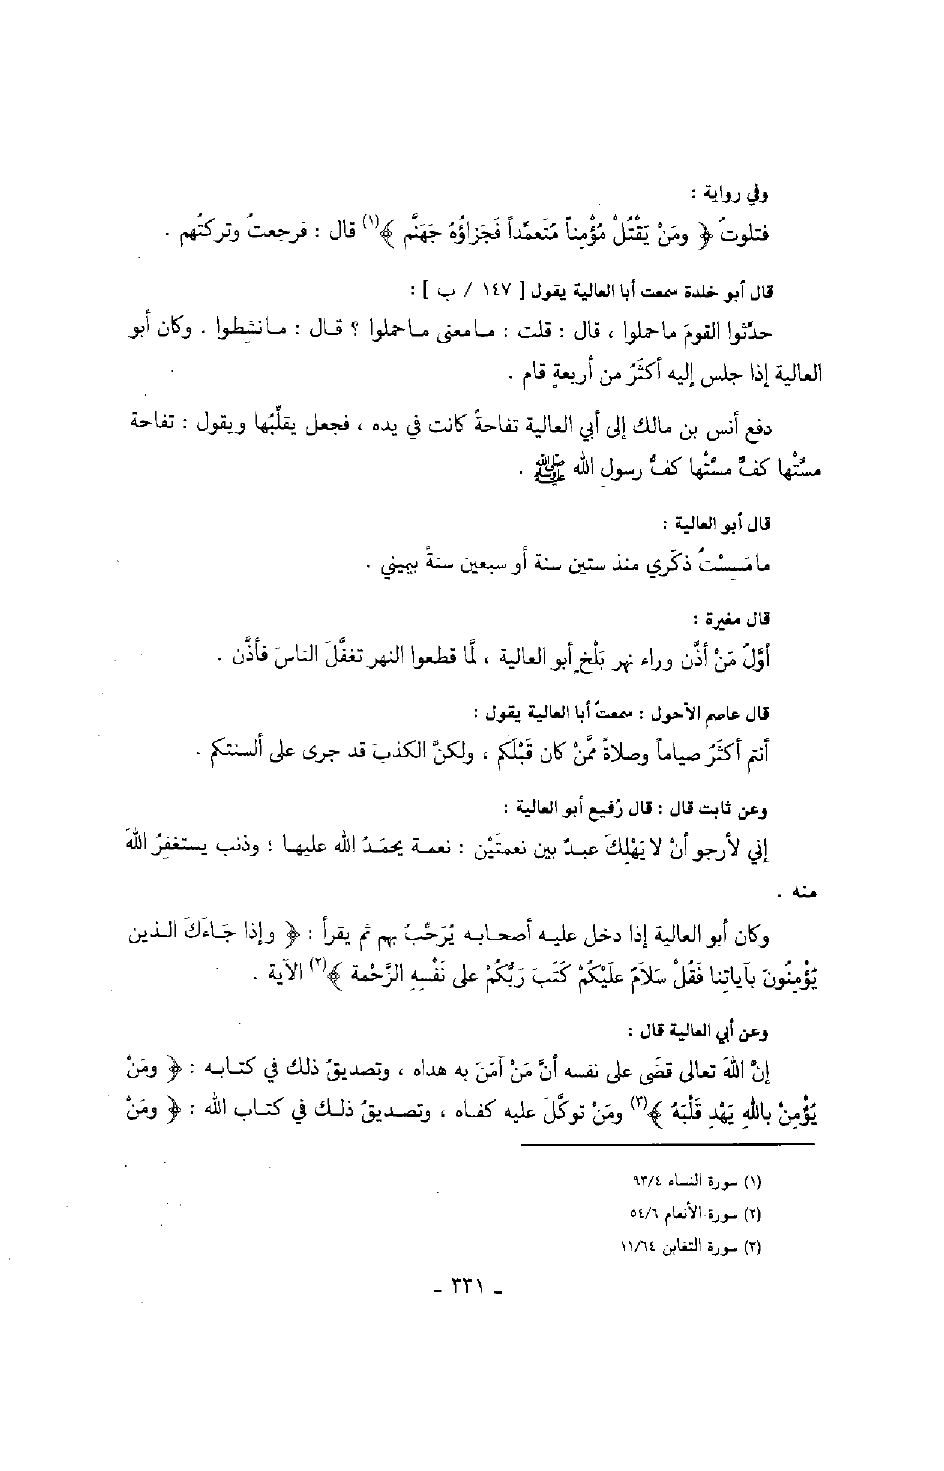 وفي رواية :
فتلوتُ ﴿ ومَنْ يَقْتُلْ مُؤْمِناً مُتَعمِّداً فَجَزاؤُهُ جَهَنَّم ﴾(١) قال : فرجعتُ وتركتُهم .
قال أبو خلدة سمعت أبا العالية يقول [ ١٤٧ / ب ] :
حدّثوا القومَ ماحملوا ، قال : قلت : مامعنى ماحملوا ؟ قال : مانشطوا . وكان أبو
العالية إذا جلس إليه أكثَرُ من أربعةٍ قام .
دفع أنس بن مالك إلى أبي العالية تفاحةً كانت في يده ، فجعل يقلّبُها ويقول : تفاحة
مسَّتْها كفٌّ مسَّتْها كفُّ رسولِ الله ﷺ .
قال أبو العالية :
مامَسِسْتُ ذكَري منذ ستين سنة أو سبعين سنةً بيميني .
قال مغيرة :
أوّلُ مَنْ أذَّن وراء نهر بَلْخٍ أبو العالية ، لمّا قطعوا النهر تغفَّلَ الناسَ فأذَّن .
قال عاصم الأحول : سمعتُ أبا العالية يقول :
أنتم أكثَرُ صياماً وصلاةً ممَّنْ كان قَبْلَكم ، ولكنَّ الكذبَ قد جرى على ألسنتكم .
وعن ثابت قال : قال رُفيع أبو العالية :
إني لأرجو أنْ لا يَهْلِكَ عبدٌ بين نعمتَيْن : نعمة يحمَدُ الله عليها ؛ وذنب يستغفِرُ اللهَ
منه .
وكان أبو العالية إذا دخل عليه أصحابه يُرَحّبُ بهم ثم يقرأ : ﴿ وإذا جَاءَكَ الذين
يُؤْمِنُونَ بآياتِنا فَقُلْ سَلاَمٌ عَلَيْكُمْ كَتَبَ رَبُّكُمْ على نَفْسِهِ الرَّحْمة ﴾(٢) الآية .
وعن أبي العالية قال :
إنَّ اللهَ تعالى قضَى على نفسه أنَّ مَنْ آمَنَ به هداه ، وتصديقُ ذلك في كتابه : ﴿ ومَنْ
يُؤْمِنْ باللهِ يَهْدِ قَلْبَهُ ﴾(٣) ومَنْ توكَّلَ عليه كفاه ، وتصديقُ ذلك في كتاب الله : ﴿ ومَنْ
(١) سورة النساء ٩٣/٤
(٢) سورة الأنعام ٥٤/٦
(٣) سورة التغابن ١١/٦٤
ـ ٣٣١ ـ